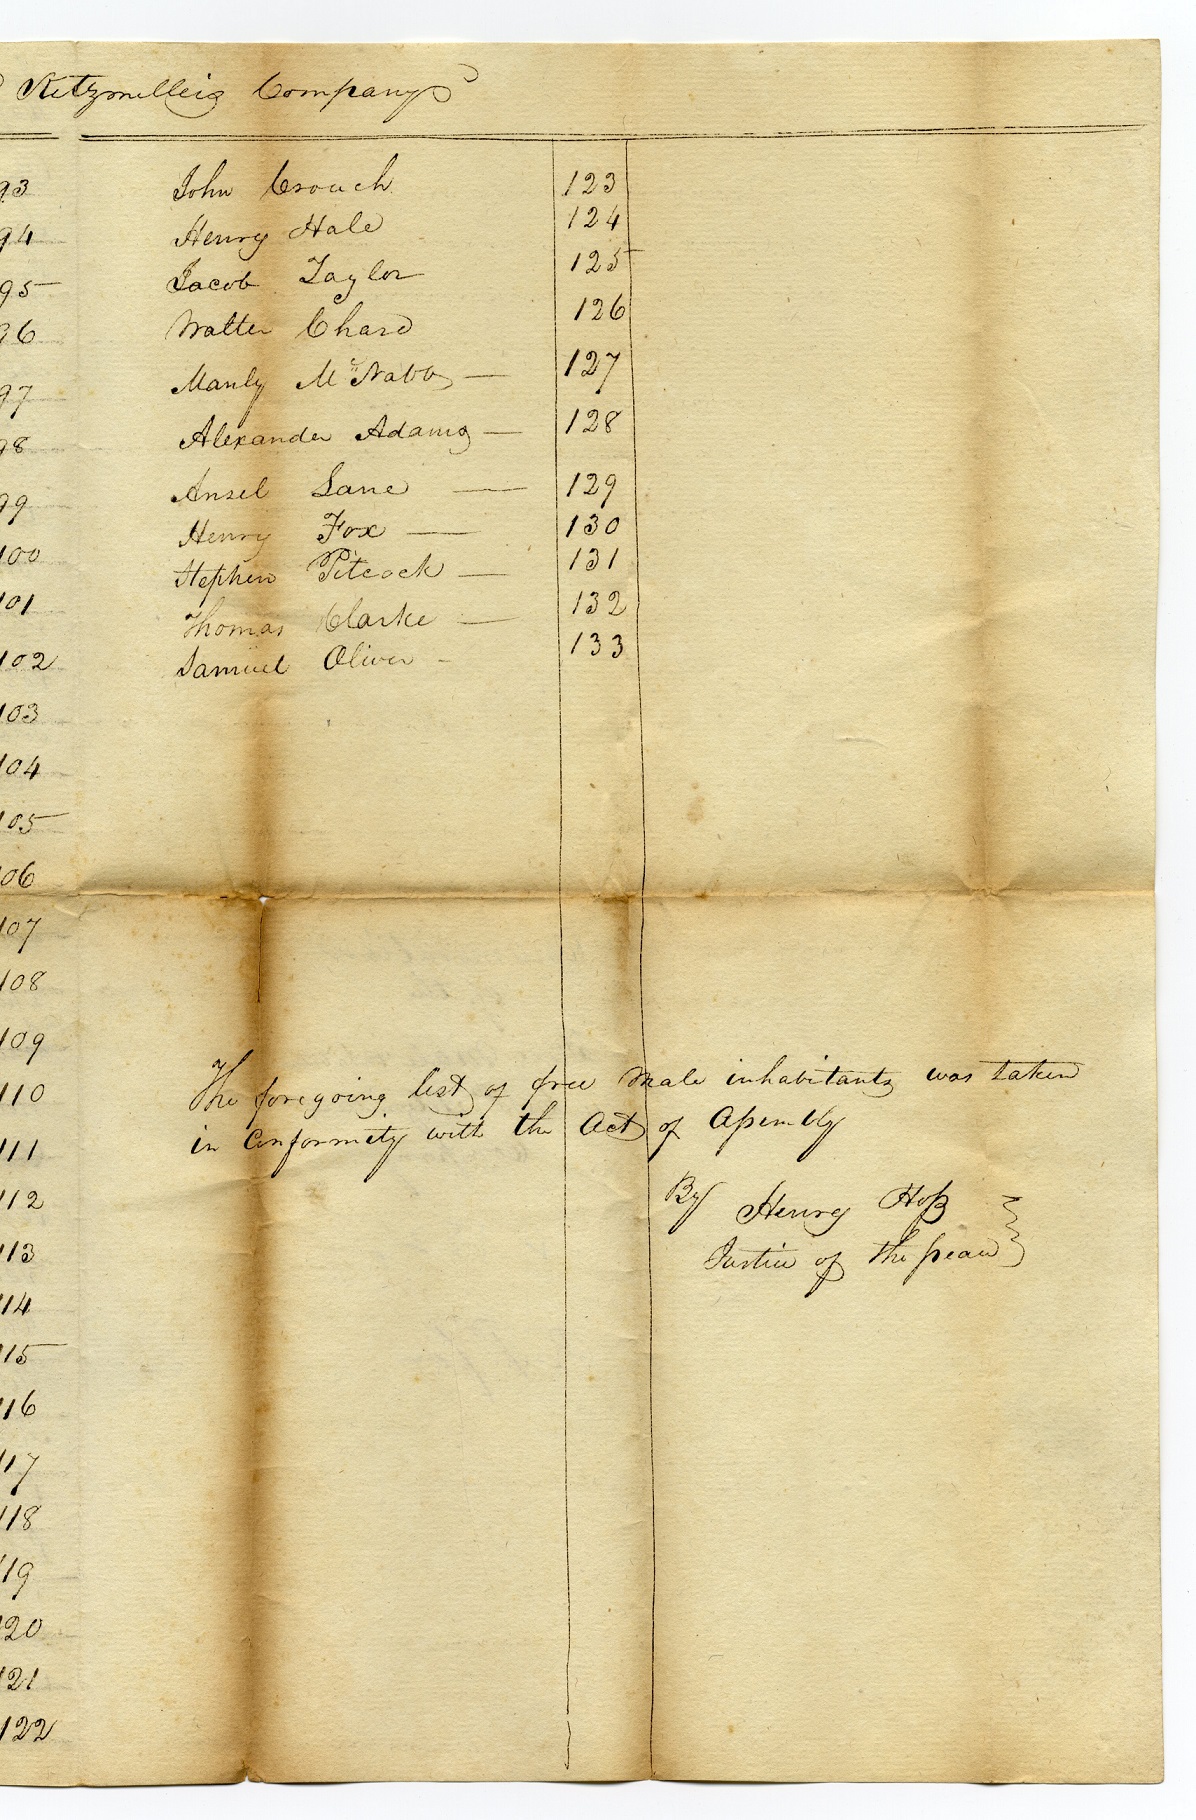 Kitzmillers Company
93
94
95
96
97
98
99
100
101
102
103
104
105
106
107
108
109
110
111
112
113
114
115
116
117
118
119
120
121
122
John Crouch 123
Henry Hale 124
Jacob Taylor 125
Walter Chase 126
Manly McNabb 127
Alexander Adams 128
Ansel Lane 129
Henry Fox 130
Stephen Pitcock 131
Thomas Clarke 132
Samuel Oliver 133
The foregoing list of free male inhabitants was taken
in Conformity with the Act of Assembly
By Henry Hoss
Justice of the peace